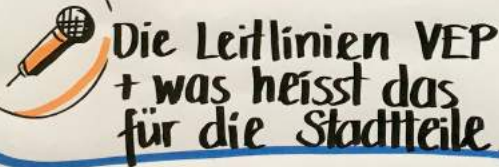 Die Leitlinien VEP
+ was heisst das
für die Stadtteile